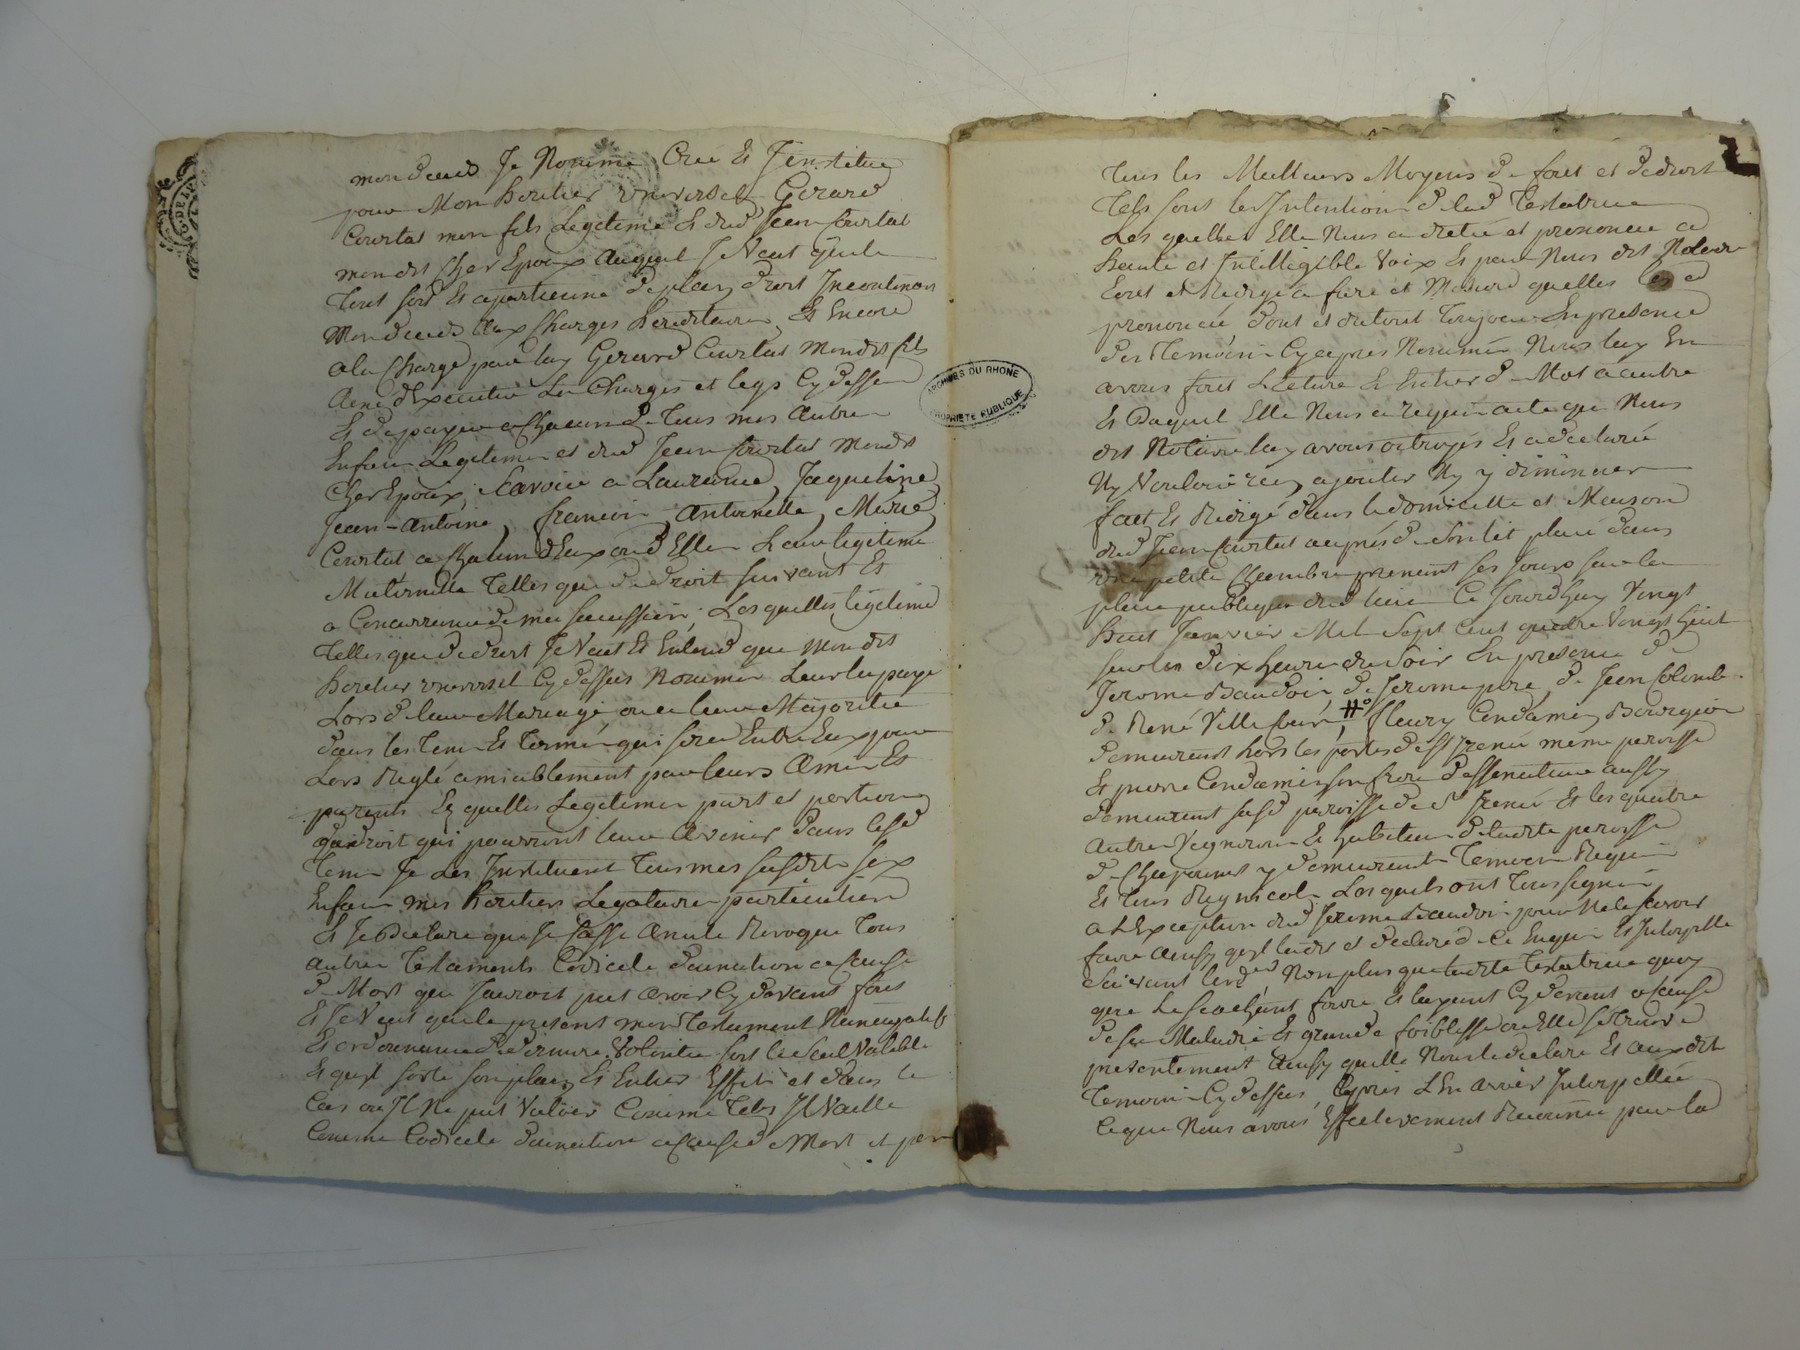 mon deces Je Nomme Crée Et Jinstitue
pour Mon heritier universel Gerard
Courtat mon fils Legitime Et dud Jean Courtat
mondit Cher Epoux auquel Je Veut qu'il
tout soit Et apartienne de plain droit Incontinant
Mon deces aux Charges hereditaires, Et Encore
a la Charge par luy Gerard Courtat mondit fils
ainé d'Executer Les Charges et legs Cydessus
Et de payer a Chacun de tous mes autres
Enfans Legitimes et dud Jean Courtat mondit
Cher Epoux, Savoir a Laurence, Jaqueline,
Jean-Antoine, francois, Antoinette, Marie,
Courtat a Chacun d'Eux ou d'Elles Leur legitime
Maternelle telles que de droit suivant Et
a Concurrance de ma succession, Lesquelles legitime
telles que de droit Je Veut Et Entend que mondit
heritier universel Cy dessus Nommer Leur la paye
Lors de leur Mariage ou a leur Majorité
dans les tems Et termes qui sera Entre Eux pour
Lors Reglé amiablement par leurs amis Et
parents Es quelles Legitimes part et portion
de droit qui pourront leur avenir dans lesd
tems Je Les Instituent tous mes susdits six
Enfans mes heritiers Legataires particuliers
Et Je Declare que Je Casse anule Revoque tous
autres testaments Codicile donnation a Cause
de Mort que Jaurois put avoir Cy devant fait
Et Je Veut que le present mon testament Nuncupatif
Et ordonnance de derniere Volonté soit le seul Valable
Et qu'il sorte son plain Et Entier Effet et dans le
Cas ou Il Ne put Valoir Comme tels Il Vaille
Comme Codicile donnation a Cause de Mort et par
tous les Meilleurs Moyens de fait et de droit
tels sont les Intentions de lad testatrice
Les quelles Elle Nous a dicté et prononcé a
haute et Intelligible Voix Et par Nous dit Notaire
Ecrit et Redigé a fure et Mesure quelles
prononcée dont et du tout toujours En presence
des temoins Cy apres Nommés Nous luy En
avons fait Lecture En Entier de Mot a autre
Et Duquel Elle Nous a requis acte que Nous
dit Notaire luy avons octroyés Et a declaré
Ny Vouloir rien ajouter Ny y diminuer
fait Et Redigé dans le domicille et Maison
dud Jean Courtat auprés de son lit placé dans
une petite Chambre prenant ses Jours sur la
place publique dud lieu Ce Jourdhuy Vingt
huit Janvier Mil sept Cent quatre Vingt huit
sur les dix heures du soir En presence de
Jerome Baudoin de Jerome pere, de Jean Colomb
de René Ville # fleury Condamin Bourgeois
demeurant hors les portes de St Irenée même paroisse
Et pierre Condamin son frere aussy
demeurant susd paroisse de St Irenée Et les quatre
autres Vignerons Et habitans de ladite paroisse
de Chaponost y demeurants temoins Requis
Et tous Regnicoles Lesquels ont tous signés
a L'Exception dud Jerome Baudoin pour Ne le savoir
faire ainsy quil la dit et declaré de Ce Enquis Et Interpellé
suivant l'ord Nonplus que ladite testatrice quoy
que Le sachant faire Et layant Cy devant a Cause
de sa Maladie Et grande foiblesse ou Elle se trouve
presentement ainsy quelle Nous le declare Et aux dits
temoins Cy dessus, apres L'En avoir Interpellée
Ce que Nous avons Effectivement Reconnu par la
ARCHIVES DU RHONE
PROPRIÉTÉ PUBLIQUE